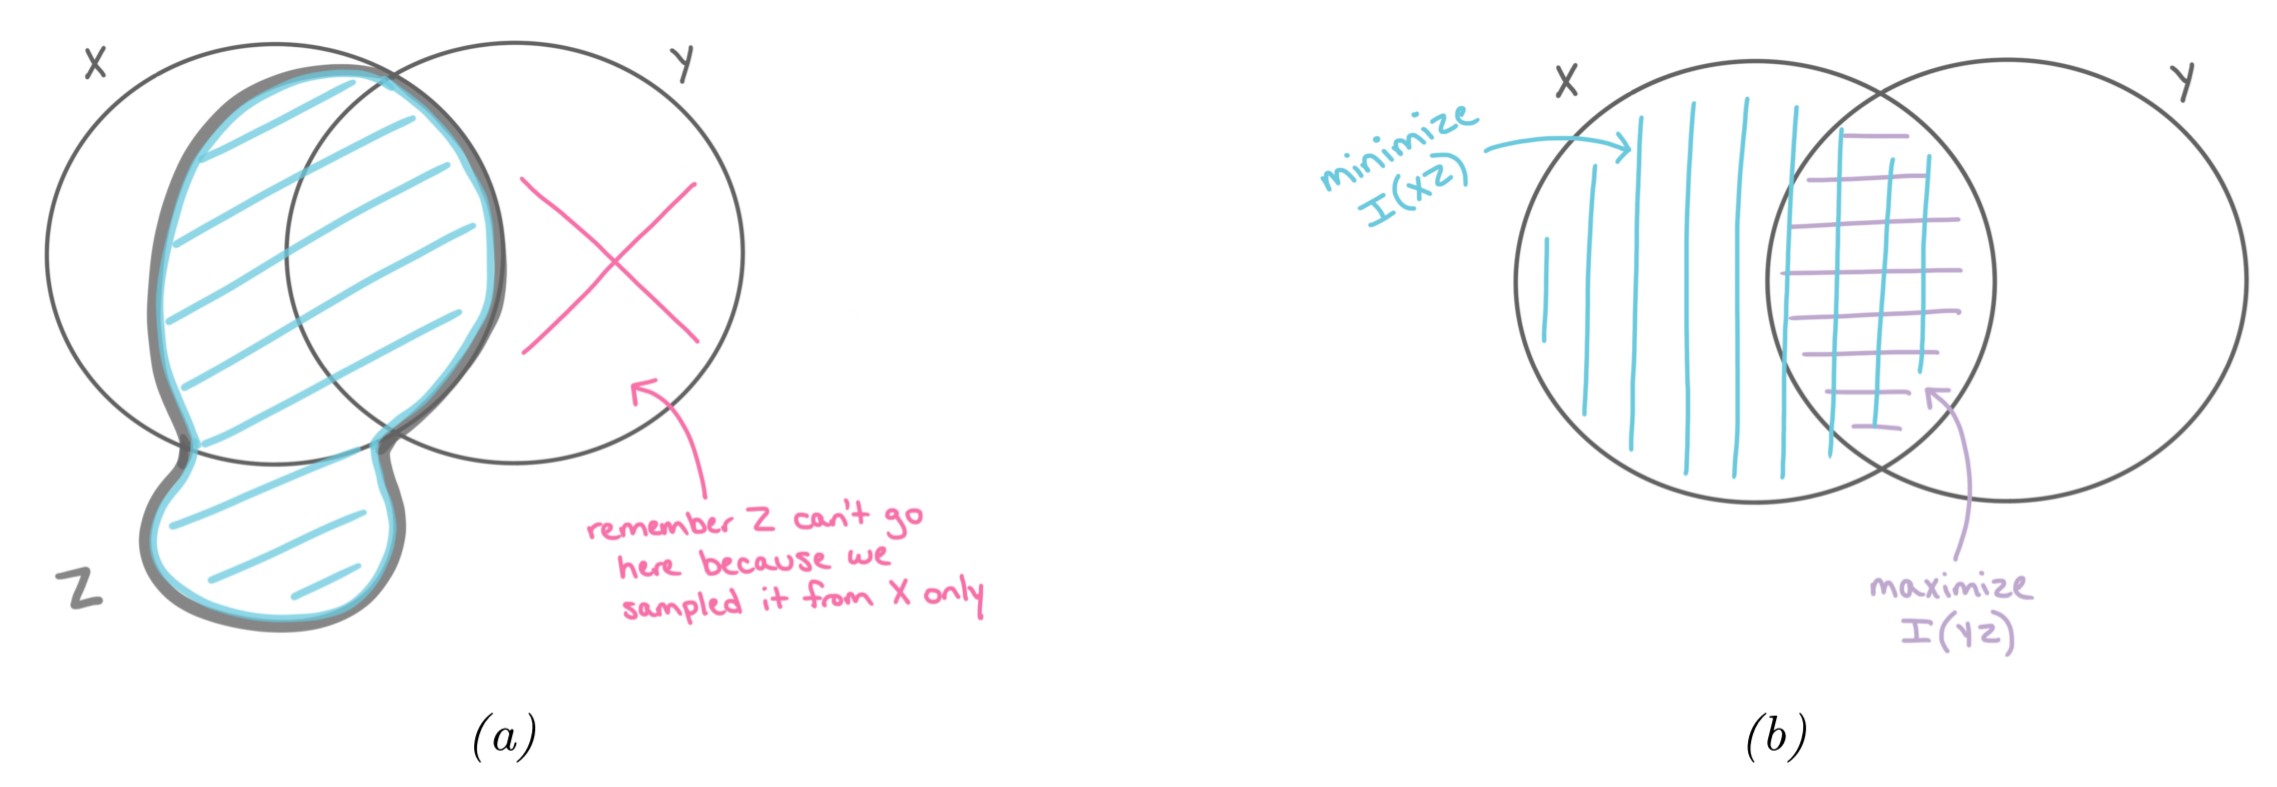 X
Y
remember Z can't go
here because we
sampled it from X only
Z
(a)
X
Y
minimize
I(XZ)
maximize
I(YZ)
(b)